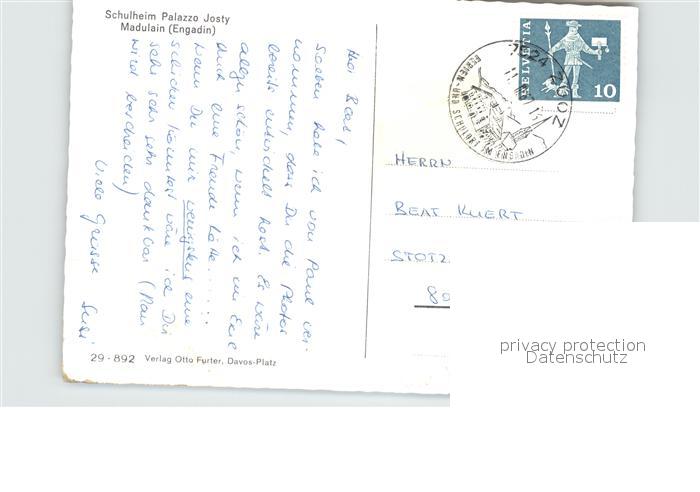 Schulheim Palazzo Josty
Madulain (Engadin)
Hoi Beat!
Soeben habe ich von Paul ver-
nommen, dass Du die Photos
bereits entwickelt hast. Es wäre
allzu schön, wenn ich im Exil
auch eine Freude hätte.....
Wenn Du mir wenigstens eine
schicken könntest wäre ich Dir
sehr sehr sehr dankbar (Man
wird bescheiden)
Viele Grüsse Susi
29-892 Verlag Otto Furter, Davos-Platz
HELVETIA
10
7524 ZUOZ
FERIEN- UND SCHULORT IM ENGADIN
HERRN
BEAT KUERT
STOTZ
80
privacy protection
Datenschutz